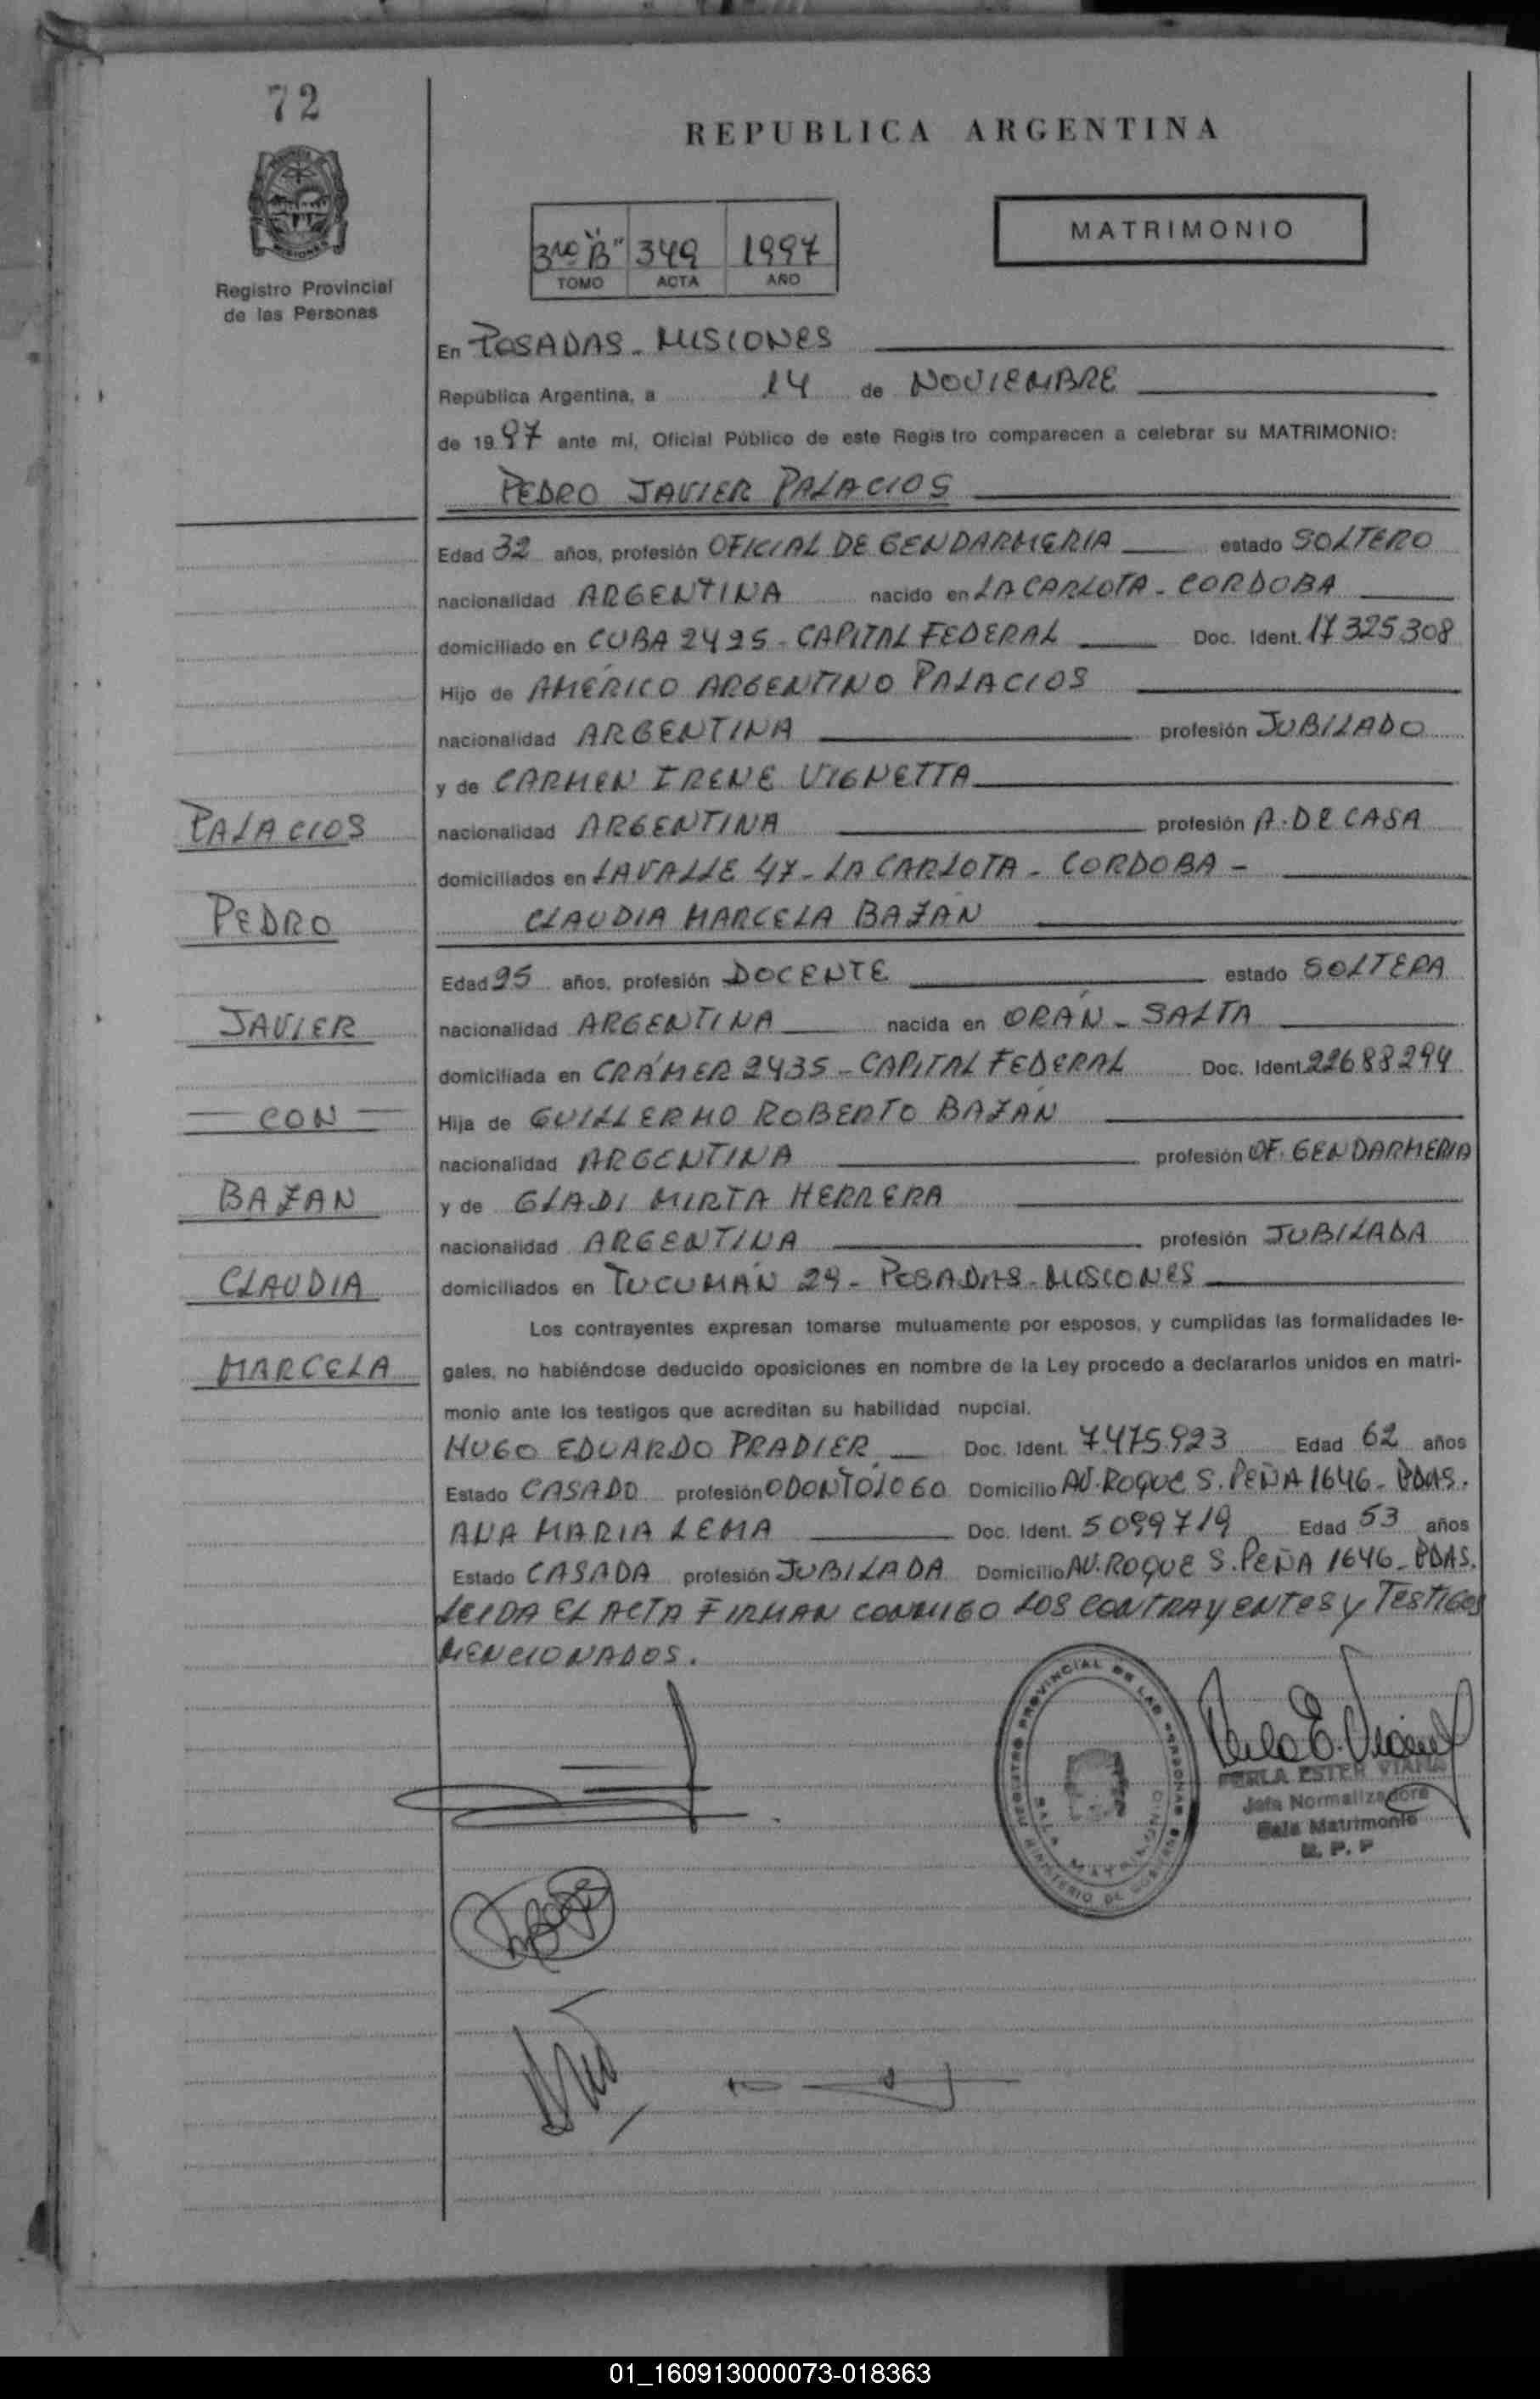 72
REPUBLICA ARGENTINA
MATRIMONIO
3ro "B" 349 1997
TOMO ACTA AÑO
Registro Provincial
de las Personas
En POSADAS - MISIONES
República Argentina, a 14 de NOVIEMBRE
de 1997 ante mi, Oficial Público de este Regis tro comparecen a celebrar su MATRIMONIO:
PEDRO JAVIER PALACIOS
Edad 32 años, profesión OFICIAL DE GENDARMERIA estado SOLTERO
nacionalidad ARGENTINA nacido en LA CARLOTA - CORDOBA
domiciliado en CUBA 2425 - CAPITAL FEDERAL Doc. Ident. 17325308
Hijo de AMÉRICO ARGENTINO PALACIOS
nacionalidad ARGENTINA profesión JUBILADO
y de CARMEN IRENE VIGNETTA
PALACIOS
nacionalidad ARGENTINA profesión A. DE CASA
domiciliados en LAVALLE 47 - LA CARLOTA - CORDOBA -
PEDRO
CLAUDIA MARCELA BAZÁN
Edad 25 años, profesión DOCENTE estado SOLTERA
JAVIER
nacionalidad ARGENTINA nacida en ORÁN - SALTA
domiciliada en CRÁMER 2435 - CAPITAL FEDERAL Doc. Ident. 22688294
CON
Hija de GUILLERMO ROBERTO BAZÁN
nacionalidad ARGENTINA profesión OF. GENDARMERIA
BAZAN
y de GLADI MIRTA HERRERA
nacionalidad ARGENTINA profesión JUBILADA
CLAUDIA
domiciliados en TUCUMÁN 24 - POSADAS - MISIONES
Los contrayentes expresan tomarse mutuamente por esposos, y cumplidas las formalidades le-
MARCELA
gales, no habiéndose deducido oposiciones en nombre de la Ley procedo a declararlos unidos en matri-
monio ante los testigos que acreditan su habilidad nupcial.
HUGO EDUARDO PRADIER Doc. Ident. 7.475.923 Edad 62 años
Estado CASADO profesión ODONTÓLOGO Domicilio AV. ROQUE S. PEÑA 1646 - PDAS.
ANA MARIA LEMA Doc. Ident. 5099719 Edad 53 años
Estado CASADA profesión JUBILADA Domicilio AV. ROQUE S. PEÑA 1646 - PDAS.
LEIDA EL ACTA FIRMAN CONMIGO LOS CONTRAYENTES Y TESTIGOS
MENCIONADOS.
REGISTRO PROVINCIAL DE LAS PERSONAS
SALA MATRIMONIO
MINISTERIO DE GOBIERNO
PERLA ESTER VIANA
Jefa Normalizadora
Sala Matrimonio
R. P. P
01_160913000073-018363